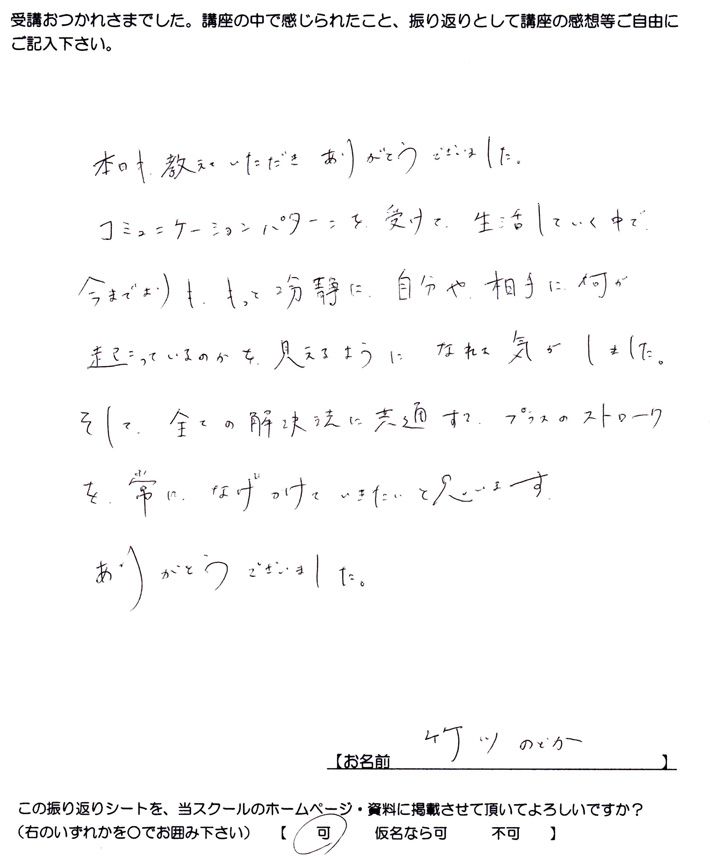 受講おつかれさまでした。講座の中で感じられたこと、振り返りとして講座の感想等ご自由に
ご記入下さい。
本日も、教えていただき ありがとうございました。
コミュニケーションパターンを、受けて、生活していく中で、
今までよりも、もっと冷静に、自分や、相手に、何が
起こっているのかを、見えるように なれる 気が しました。
そして、全ての解決法に共通する、プラスのストローク
を、常に、なげかけていきたいと思います。
ありがとうございました。
【お名前 竹ツ のどか 】
この振り返りシートを、当スクールのホームページ・資料に掲載させて頂いてよろしいですか？
（右のいずれかを〇でお囲み下さい） 【 可 仮名なら可 不可 】